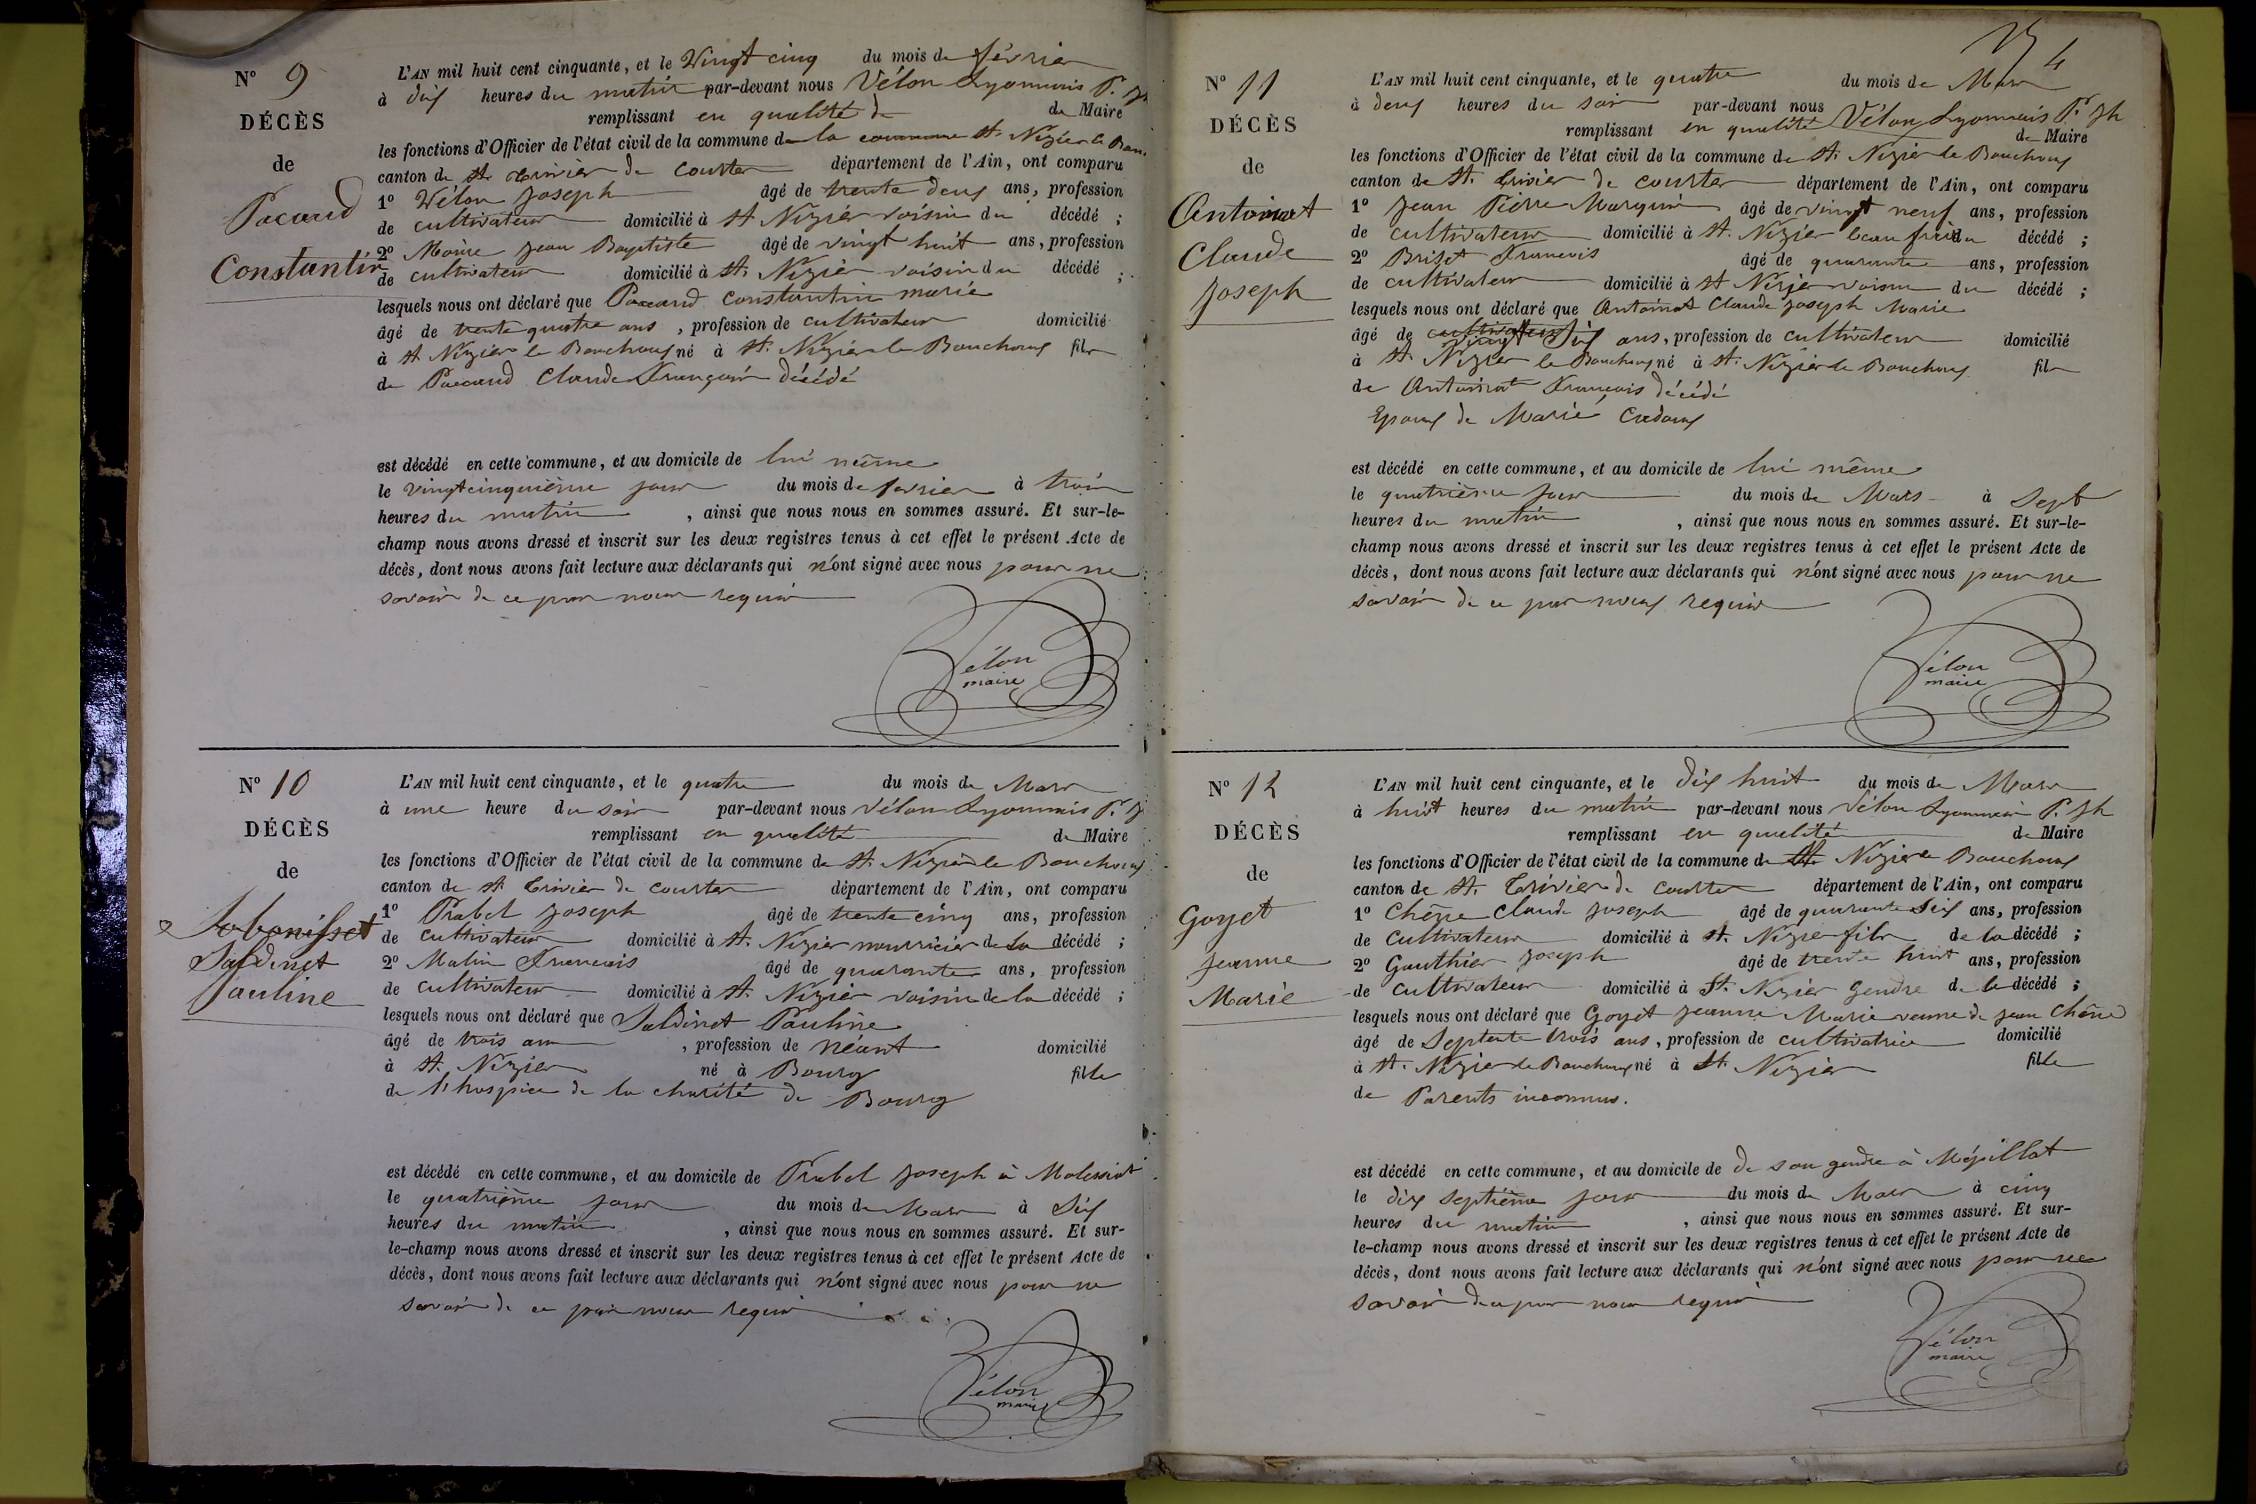 N° 9
DÉCÈS
de
Pacaud
Constantin
L'AN mil huit cent cinquante, et le Vingt cinq du mois de février
à dix heures du matin par-devant nous Vélon Lyonnais P.
remplissant en qualité de de Maire
les fonctions d'Officier de l'état civil de la commune de la commune St. Nizier le Bou
canton de St. Trivier de Courtes département de l'Ain, ont comparu
1° Vélon Joseph âgé de trente deux ans, profession
de cultivateur domicilié à St Nizier voisin du décédé ;
2° Moine Jean Baptiste âgé de vingt huit ans, profession
de cultivateur domicilié à St. Nizier voisin du décédé ;
lesquels nous ont déclaré que Paccaud Constantin marie
âgé de trente quatre ans, profession de cultivateur domicilié
à St Nizier le Bouchoux né à St. Nizier le Bouchoux fils
de Paccaud Claude François décédé
est décédé en cette commune, et au domicile de lui même
le vingt cinquième jour du mois de fevrier à trois
heures du matin, ainsi que nous nous en sommes assuré. Et sur-le-
champ nous avons dressé et inscrit sur les deux registres tenus à cet effet le présent Acte de
décès, dont nous avons fait lecture aux déclarants qui n'ont signé avec nous pour ne
savoir de ce par nous requis
Vélon
maire
N° 10
DÉCÈS
de
Jobonisset
Saldinet
Pauline
L'AN mil huit cent cinquante, et le quatre du mois de Mars
à une heure du soir par-devant nous Vélon Lyonnais P. J
remplissant en qualité de Maire
les fonctions d'Officier de l'état civil de la commune de St. Nizier le Bouchoux
canton de St. Trivier de Courtes département de l'Ain, ont comparu
1° Prabel Joseph âgé de trente cinq ans, profession
de cultivateur domicilié à St. Nizier nourricier de la décédé ;
2° Malin Francois âgé de quarante ans, profession
de cultivateur domicilié à St. Nizier voisin de la décédé ;
lesquels nous ont déclaré que Saldinet Pauline
âgé de trois ans, profession de néant domicilié
à St. Nizier né à Bourg fille
de l'hospice de la charité de Bourg
est décédé en cette commune, et au domicile de Prabel Joseph à Molessiat
le quatrième jour du mois de Mars à Six
heures du matin, ainsi que nous nous en sommes assuré. Et sur-
le-champ nous avons dressé et inscrit sur les deux registres tenus à cet effet le présent Acte de
décès, dont nous avons fait lecture aux déclarants qui n'ont signé avec nous pour ne
savoir de ce par nous requis
Vélon
maire
4
N° 11
DÉCÈS
de
Antoinat
Claude
Joseph
L'AN mil huit cent cinquante, et le quatre du mois de Mars
à deux heures du soir par-devant nous Vélon Lyonnais P. Jh
remplissant en qualité de Maire
les fonctions d'Officier de l'état civil de la commune de St. Nizier le Bouchoux
canton de St. Trivier de Courtes département de l'Ain, ont comparu
1° Jean Pierre Marguin âgé de vingt neuf ans, profession
de cultivateur domicilié à St. Nizier beau frère du décédé ;
2° Briset Francois âgé de quarante ans, profession
de cultivateur domicilié à St Nizier voisin du décédé ;
lesquels nous ont déclaré que Antoinat Claude Joseph Marie
âgé de cultivateur vingt six ans, profession de cultivateur domicilié
à St. Nizier le Bouchoux né à St. Nizier le Bouchoux fils
de Antoinat Francois décédé
Epoux de Marie Cadoux
est décédé en cette commune, et au domicile de lui même
le quatrième jour du mois de Mars à Sept
heures du matin, ainsi que nous nous en sommes assuré. Et sur-le-
champ nous avons dressé et inscrit sur les deux registres tenus à cet effet le présent Acte de
décès, dont nous avons fait lecture aux déclarants qui n'ont signé avec nous pour ne
savoir de ce par nous requis
Vélon
maire
N° 12
DÉCÈS
de
Goyet
Jeanne
Marie
L'AN mil huit cent cinquante, et le dix huit du mois de Mars
à huit heures du matin par-devant nous Vélon Lyonnais P. Jh
remplissant en qualité de Maire
les fonctions d'Officier de l'état civil de la commune de St. Nizier le Bouchoux
canton de St. Trivier de Courtes département de l'Ain, ont comparu
1° Chêne Claude Joseph âgé de quarante Six ans, profession
de Cultivateur domicilié à St. Nizier fils de la décédé ;
2° Gauthier Joseph âgé de trente huit ans, profession
de cultivateur domicilié à St. Nizier Gendre de la décédé ;
lesquels nous ont déclaré que Goyet Jeanne Marie veuve de Jean Chêne
âgé de Septente trois ans, profession de cultivatrice domicilié
à St. Nizier le Bouchoux né à St. Nizier fille
de Parents inconnus.
est décédé en cette commune, et au domicile de de son gendre à Mépillat
le dix septième jour du mois de Mars à cinq
heures du matin, ainsi que nous nous en sommes assuré. Et sur-
le-champ nous avons dressé et inscrit sur les deux registres tenus à cet effet le présent Acte de
décès, dont nous avons fait lecture aux déclarants qui n'ont signé avec nous pour ne
savoir de ce par nous requis
Vélon
maire